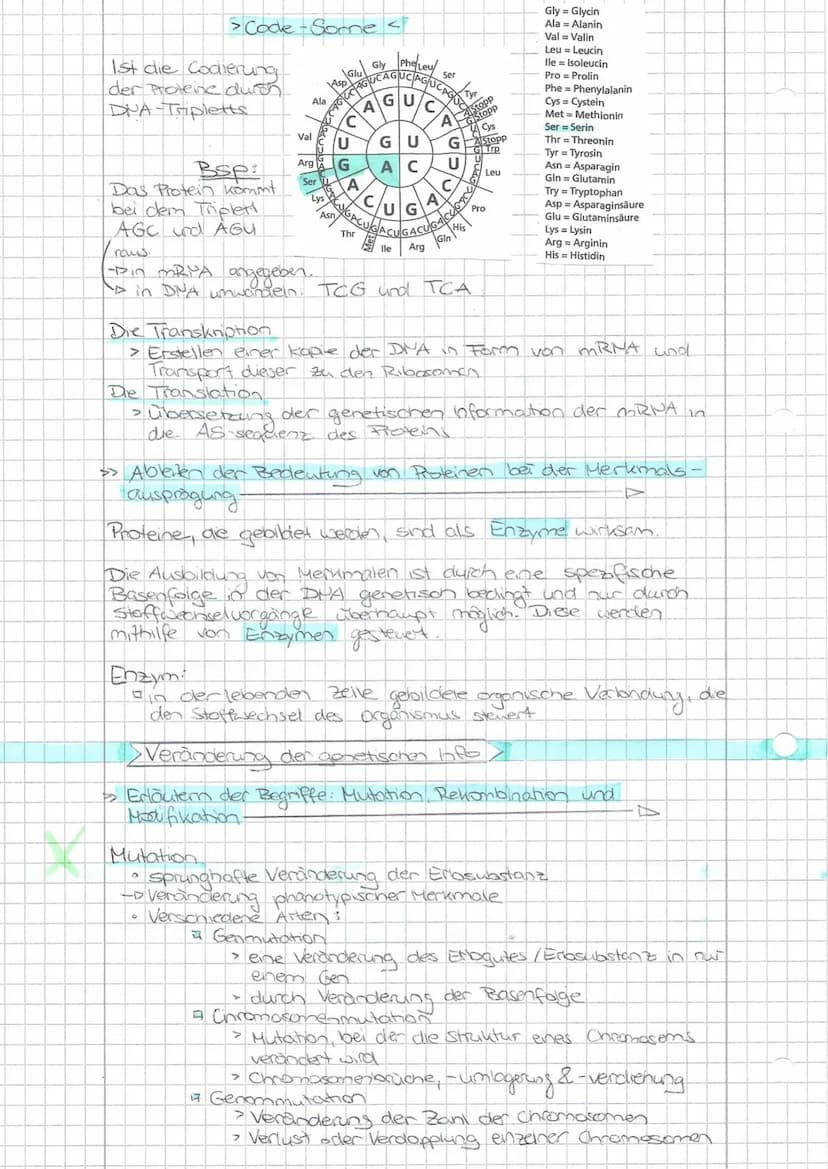 > Code-Sonne <
Ist die Codierung
der Proteine durch
DNA-Tripletts
Bsp:
Das Protein kommt
bei dem Triplett
AGC und AGU
raus.
-> in mRNA angegeben.
-> in DNA umwandeln: TCG und TCA
Gly
Phe
Leu
Ser
Tyr
Stopp
Stopp
Cys
Stopp
Trp
Leu
Pro
His
Gln
Arg
Ile
Met
Thr
Asn
Lys
Ser
Arg
Val
Ala
Asp
Glu
G U
A C
Gly = Glycin
Ala = Alanin
Val = Valin
Leu = Leucin
Ile = Isoleucin
Pro = Prolin
Phe = Phenylalanin
Cys = Cystein
Met = Methionin
Ser = Serin
Thr = Threonin
Tyr = Tyrosin
Asn = Asparagin
Gln = Glutamin
Try = Tryptophan
Asp = Asparaginsäure
Glu = Glutaminsäure
Lys = Lysin
Arg = Arginin
His = Histidin
Die Transkription
> Erstellen einer Kopie der DNA in Form von mRNA und
Transport dieser zu den Ribosomen
Die Translation
> Übersetzung der genetischen Information der mRNA in
die AS-sequenz des Proteins
>> Ableiten der Bedeutung von Proteinen bei der Merkmals-
ausprägung
Proteine, die gebildet werden, sind als Enzyme wirksam.
Die Ausbildung von Merkmalen ist durch eine spezifische
Basenfolge in der DNA genetisch bedingt und nur durch
Stoffwechselvorgänge überhaupt möglich. Diese werden
mithilfe von Enzymen gesteuert.
Enzym:
in der lebenden Zelle gebildete organische Verbindung, die
den Stoffwechsel des Organismus steuert
> Veränderung der genetischen Info >
>> Erläutern der Begriffe: Mutation, Rekombination und
Modifikation
X
Mutation
• sprunghafte Veränderung der Erbsubstanz
-> Veränderung phänotypischer Merkmale
• Verschiedene Arten:
Genmutation
> eine Veränderung des Erbgutes / Erbsubstanz in nur
einem Gen
> durch Veränderung der Basenfolge
Chromosomenmutation
> Mutation, bei der die Struktur eines Chromosoms
verändert wird
> Chromosomenbrüche, -umlagerung & -verdrehung
Genommutation
> Veränderung der Zahl der Chromosomen
> Verlust oder Verdopplung einzelner Chromosomen